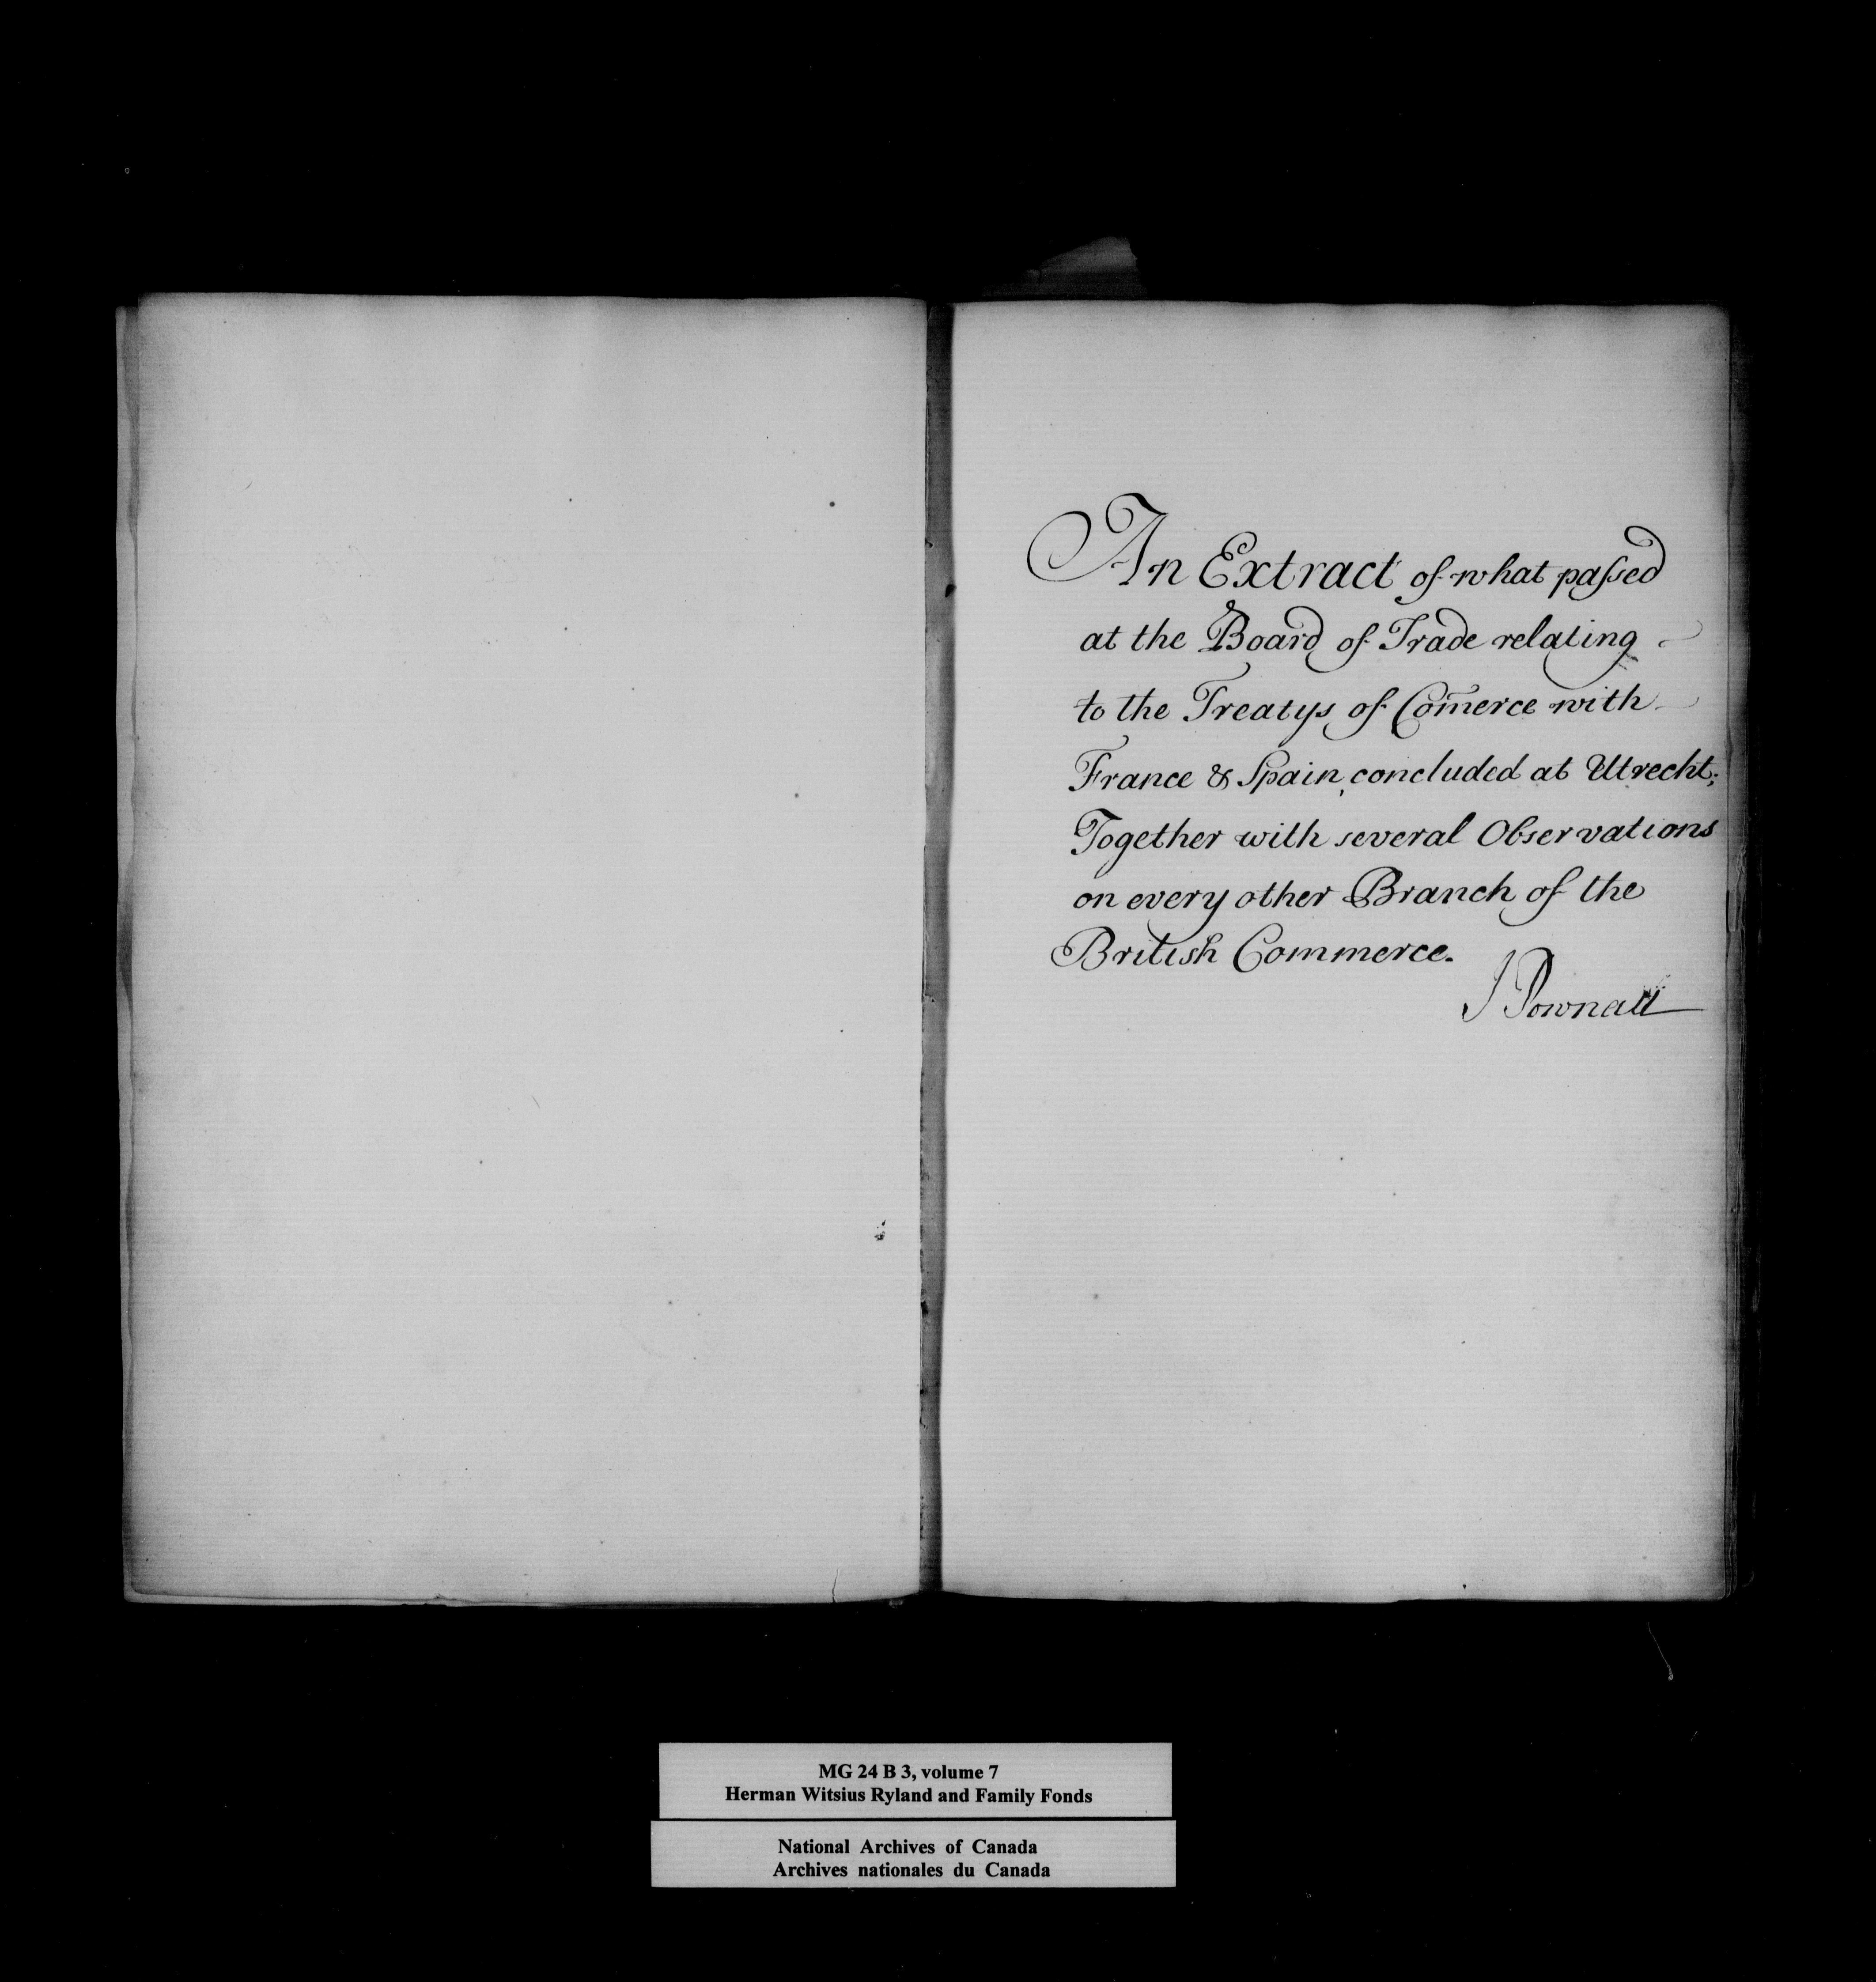 An Extract of what paſsed
at the Board of Trade relating
to the Treatys of Com̄erce with
France & Spain, concluded at Utrecht;
Together with several Observations
on every other Branch of the
British Commerce.
J Pownall
MG 24 B 3, volume 7
Herman Witsius Ryland and Family Fonds
National Archives of Canada
Archives nationales du Canada